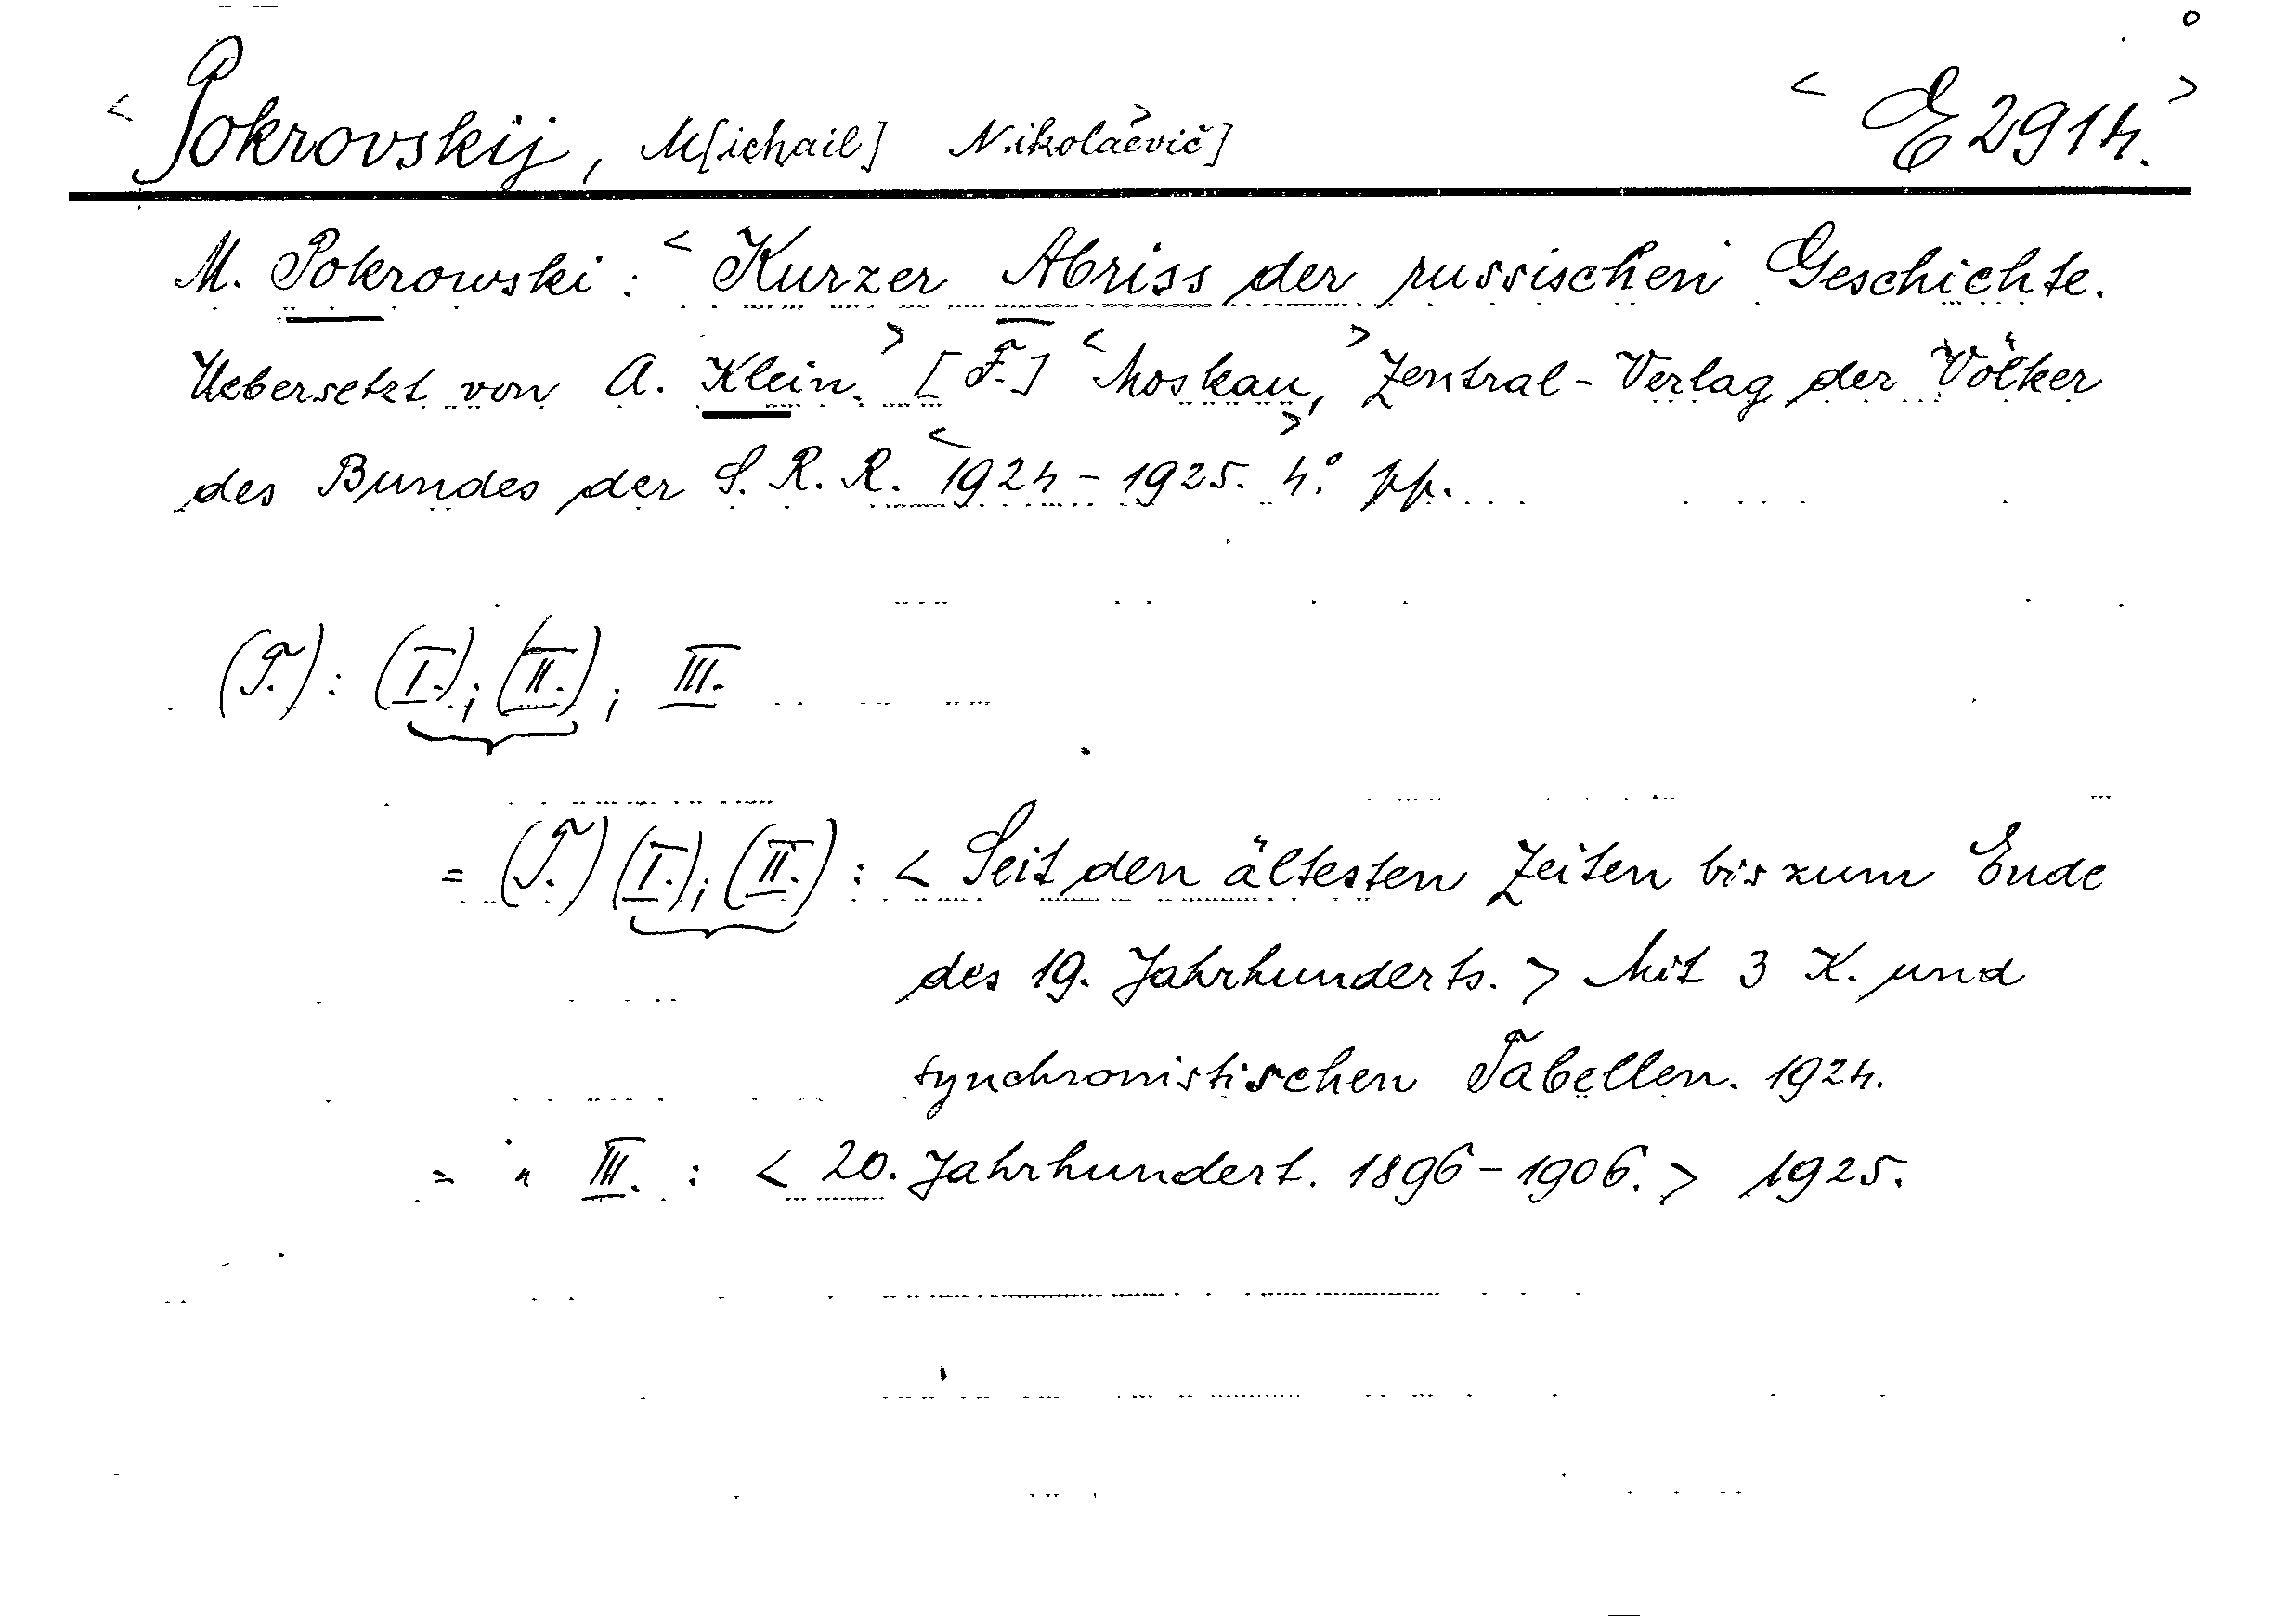 < Pokrovskij, M[ichail] Nikolaevič] > < E 2914. >
M. Pokrowski: < Kurzer Abriss der russischen Geschichte.
Uebersetzt von A. Klein. > [F.] < Moskau, > Zentral-Verlag der Völker
des Bundes der S. R. R. < 1924-1925. > 4.° pp.
(T.): (I.); (II.); III.
= (T.) (I.); (II.): < Seit den ältesten Zeiten bis zum Ende
des 19. Jahrhunderts. > Mit 3 K. und
synchronistischen Tabellen. 1924.
= " III.: < 20. Jahrhundert. 1896-1906. > 1925.